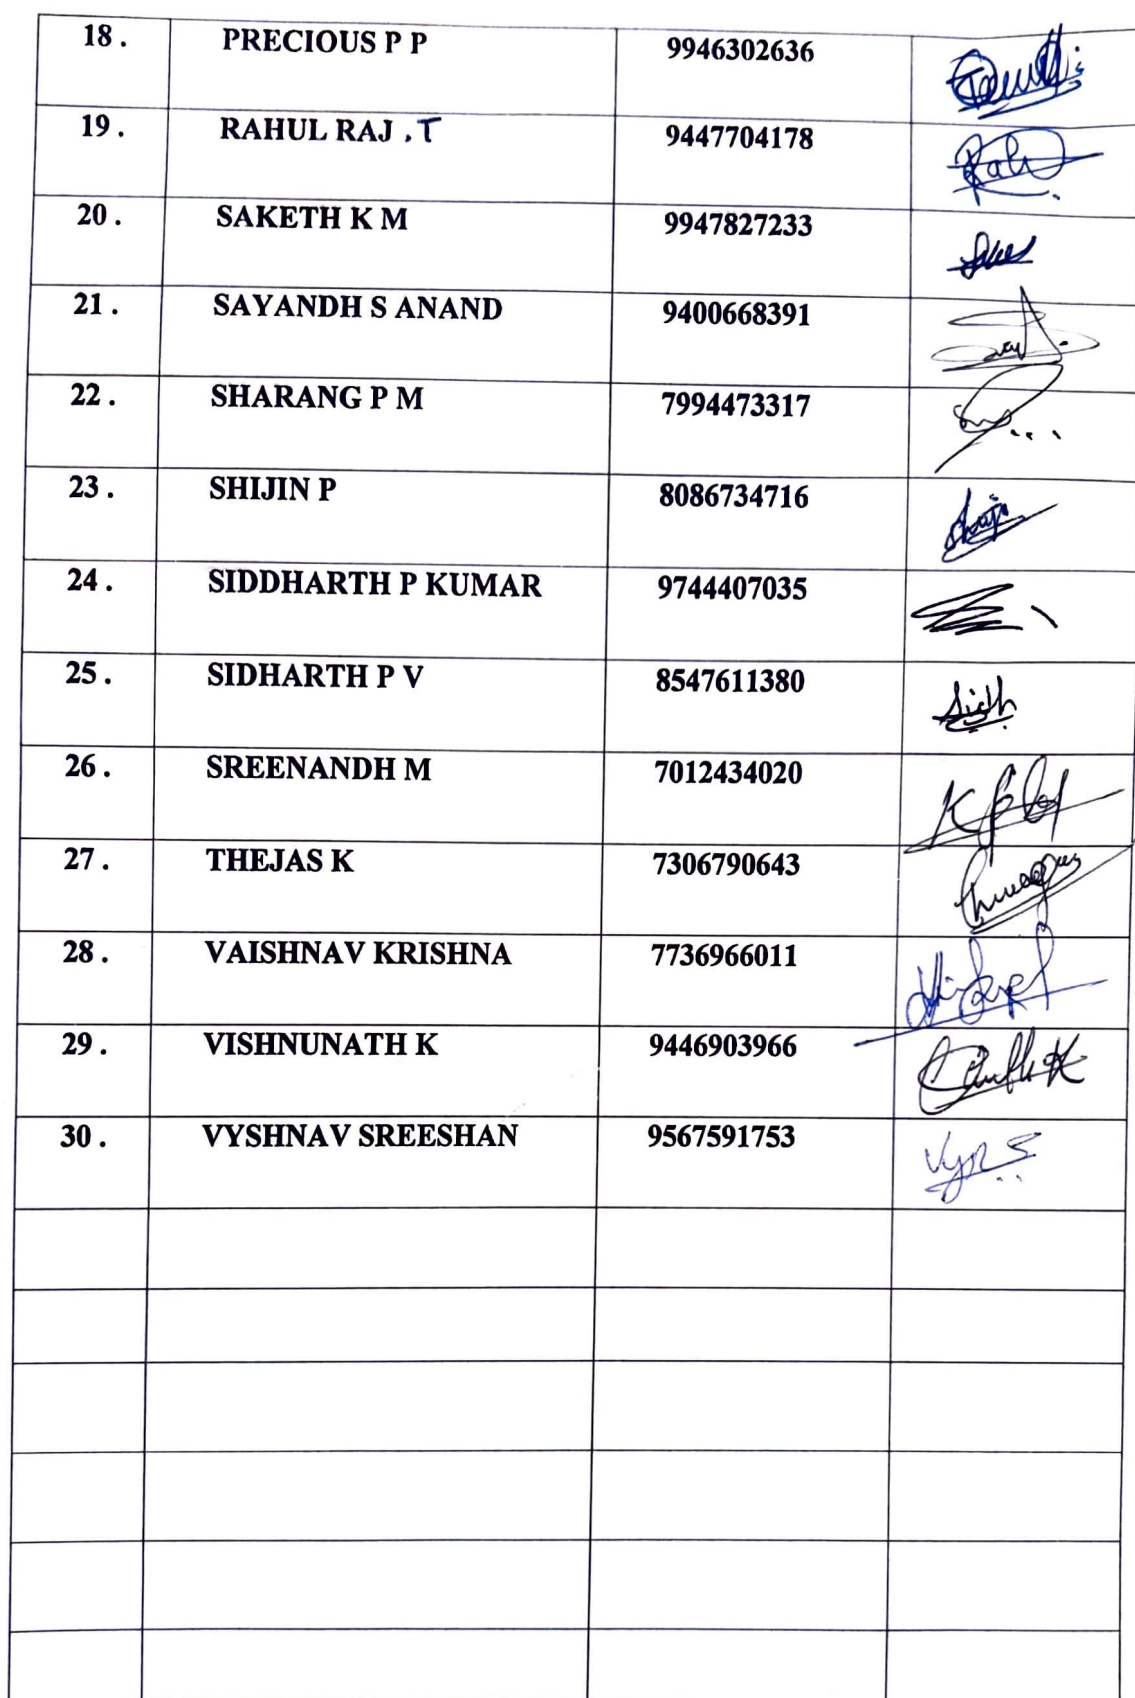 18 . PRECIOUS P P 9946302636
19 . RAHUL RAJ . T 9447704178
20 . SAKETH K M 9947827233
21 . SAYANDH S ANAND 9400668391
22 . SHARANG P M 7994473317
23 . SHIJIN P 8086734716
24 . SIDDHARTH P KUMAR 9744407035
25 . SIDHARTH P V 8547611380 Sidh
26 . SREENANDH M 7012434020
27 . THEJAS K 7306790643
28 . VAISHNAV KRISHNA 7736966011
29 . VISHNUNATH K 9446903966
30 . VYSHNAV SREESHAN 9567591753